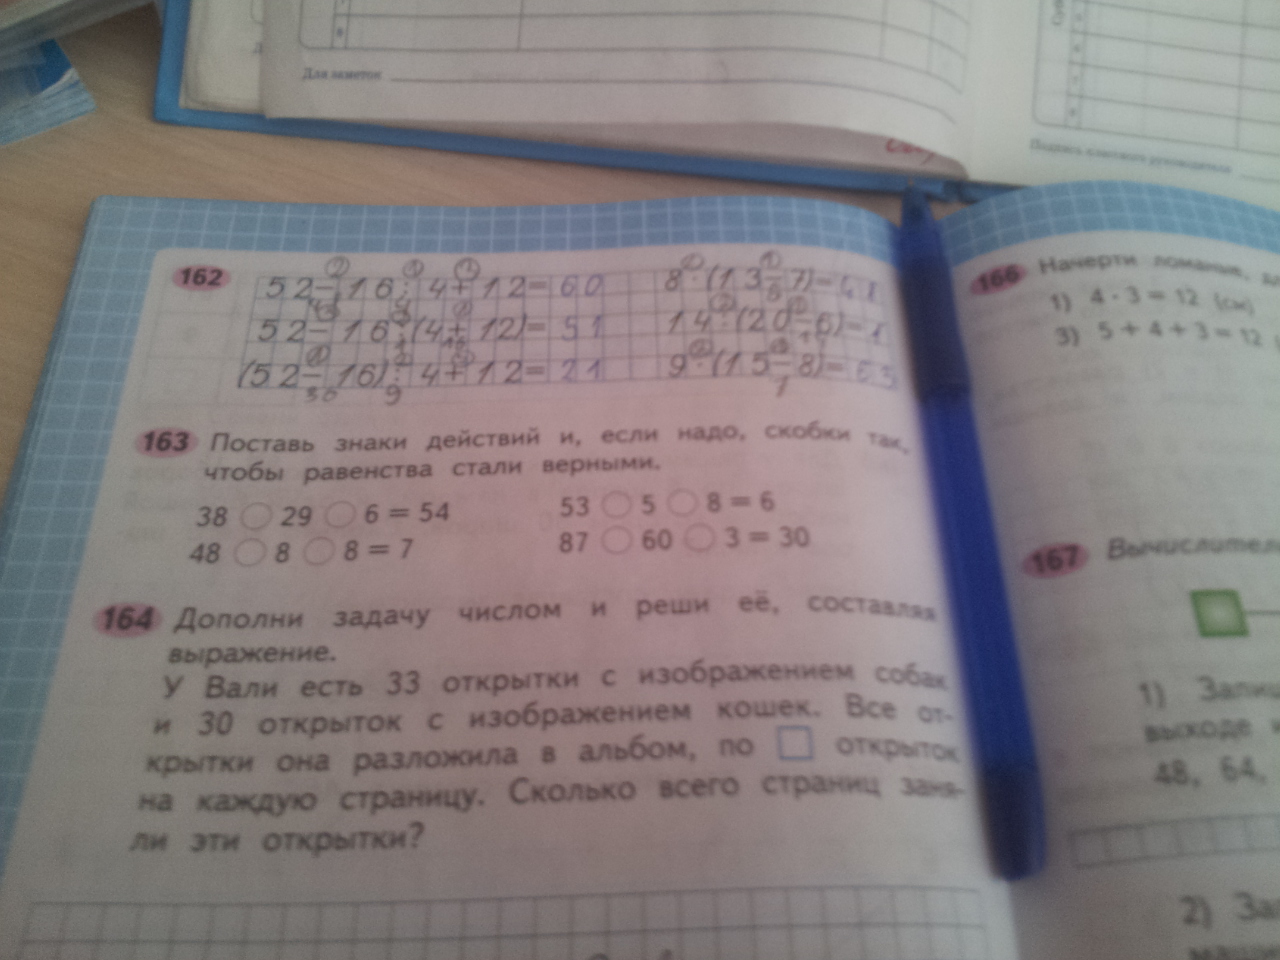 Для заметок
Подпись классного руководителя
162
52-16:4+12=60
8·(13-7)=48
52-16:(4+12)=51
14:(20-6)=1
(52-16):4+12=21
9·(15-8)=63
36 9
7
163 Поставь знаки действий и, если надо, скобки так,
чтобы равенства стали верными.
38 ○ 29 ○ 6 = 54
53 ○ 5 ○ 8 = 6
48 ○ 8 ○ 8 = 7
87 ○ 60 ○ 3 = 30
164 Дополни задачу числом и реши её, составляя
выражение.
У Вали есть 33 открытки с изображением собак
и 30 открыток с изображением кошек. Все от-
крытки она разложила в альбом, по □ открыток
на каждую страницу. Сколько всего страниц заня-
ли эти открытки?
166 Начерти ломаные,
1) 4 · 3 = 12 (см)
3) 5 + 4 + 3 = 12
167
1)
выходе
48, 64,
2)